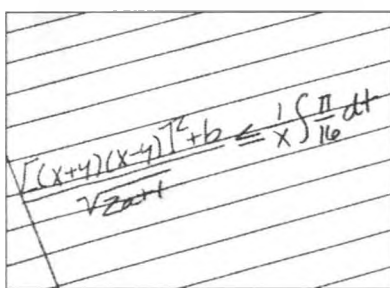 [(x+y)(x-y)]²+b / √2a+1 ≤ 1/x ∫ π/16 dt